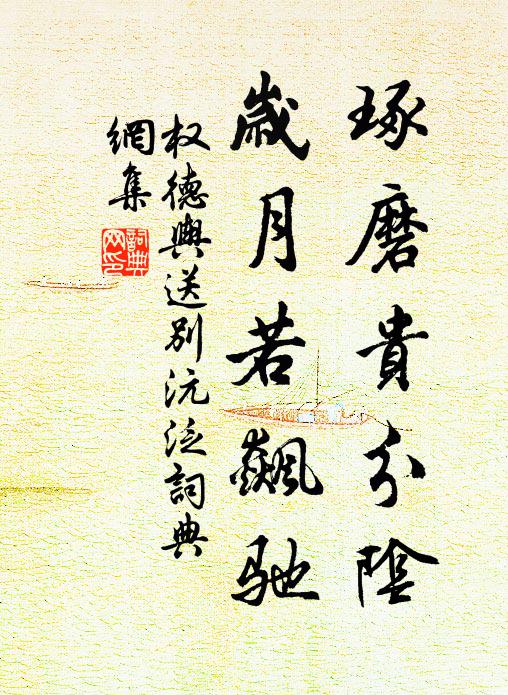 琢磨貴分陰
歲月若飆馳
权德輿送別沅泛詞典
網集
詞典
网印